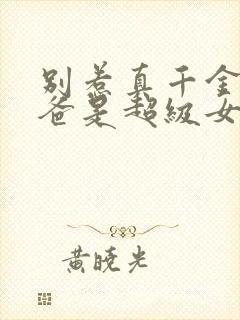 别惹真千金
爸是超级女
黄晓光